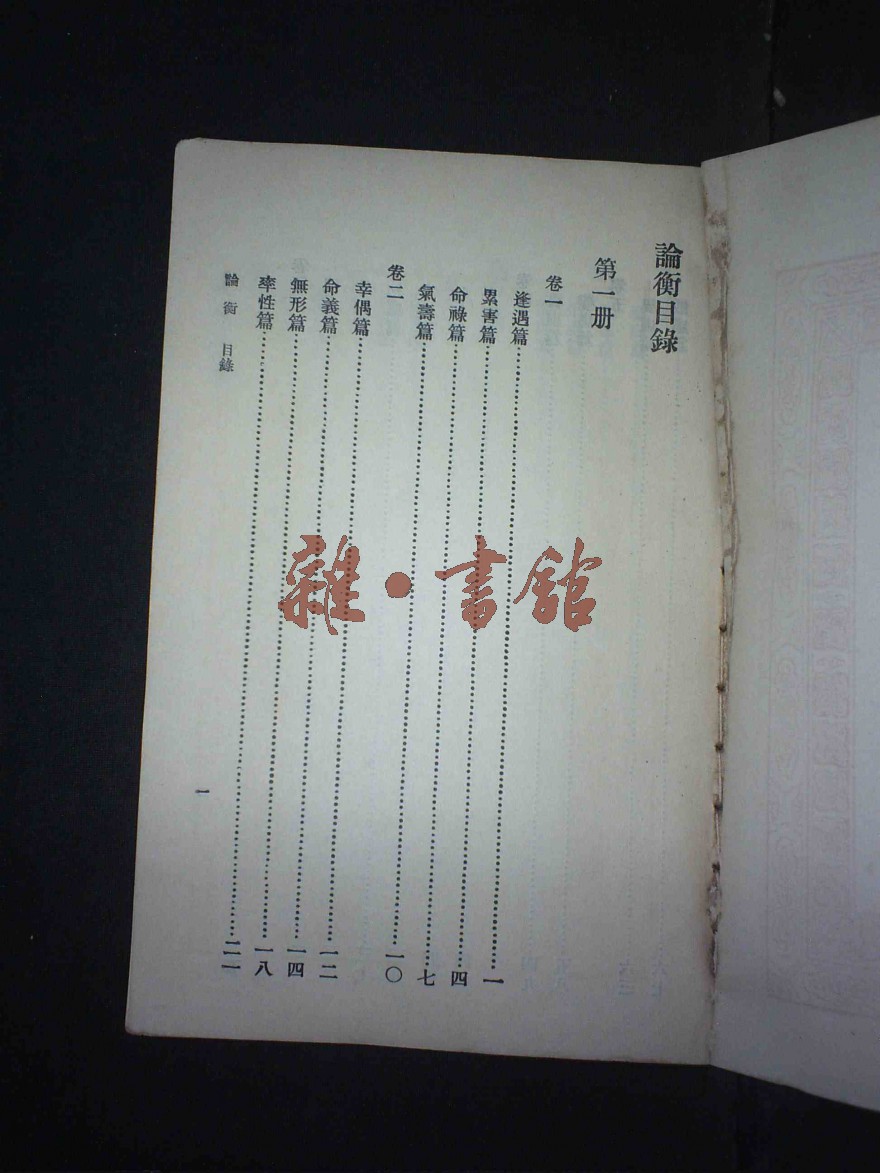 論衡目錄
第一册
卷一
逢遇篇……………………一
累害篇……………………四
命祿篇……………………七
氣壽篇……………………一〇
卷二
幸偶篇……………………一二
命義篇……………………一四
無形篇……………………一八
率性篇……………………二一
論衡 目錄
一
雜·書館